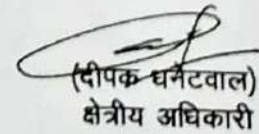 (दीपक धनेटवाल)
क्षेत्रीय अधिकारी